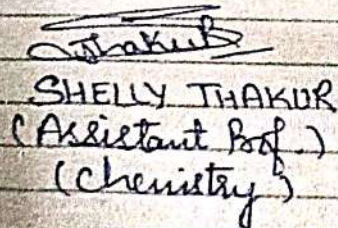 Thakur
SHELLY THAKUR
(Assistant Prof.)
(Chemistry)